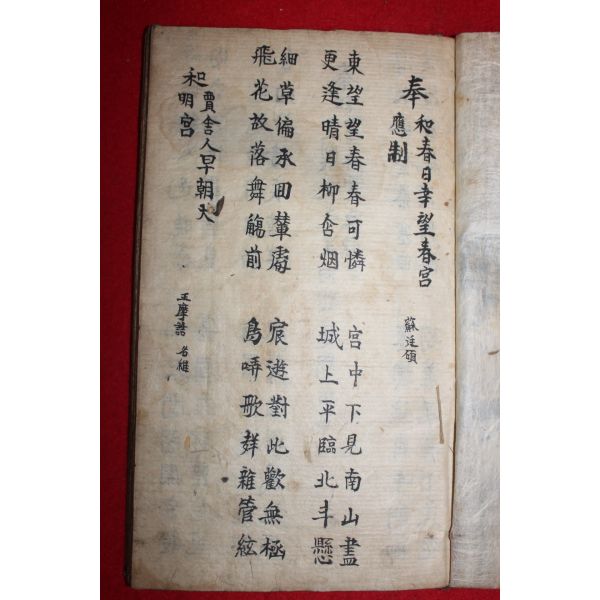 奉和春日幸望春宮
應制
蘇廷碩
東望望春春可憐
更逢晴日柳含烟
宮中下見南山盡
城上平臨北斗懸
細草偏承回輦處
飛花故落舞觴前
宸遊對此歡無極
鳥哢歌群雜管絃
和賈舍人早朝大
明宮
王摩詰 名維